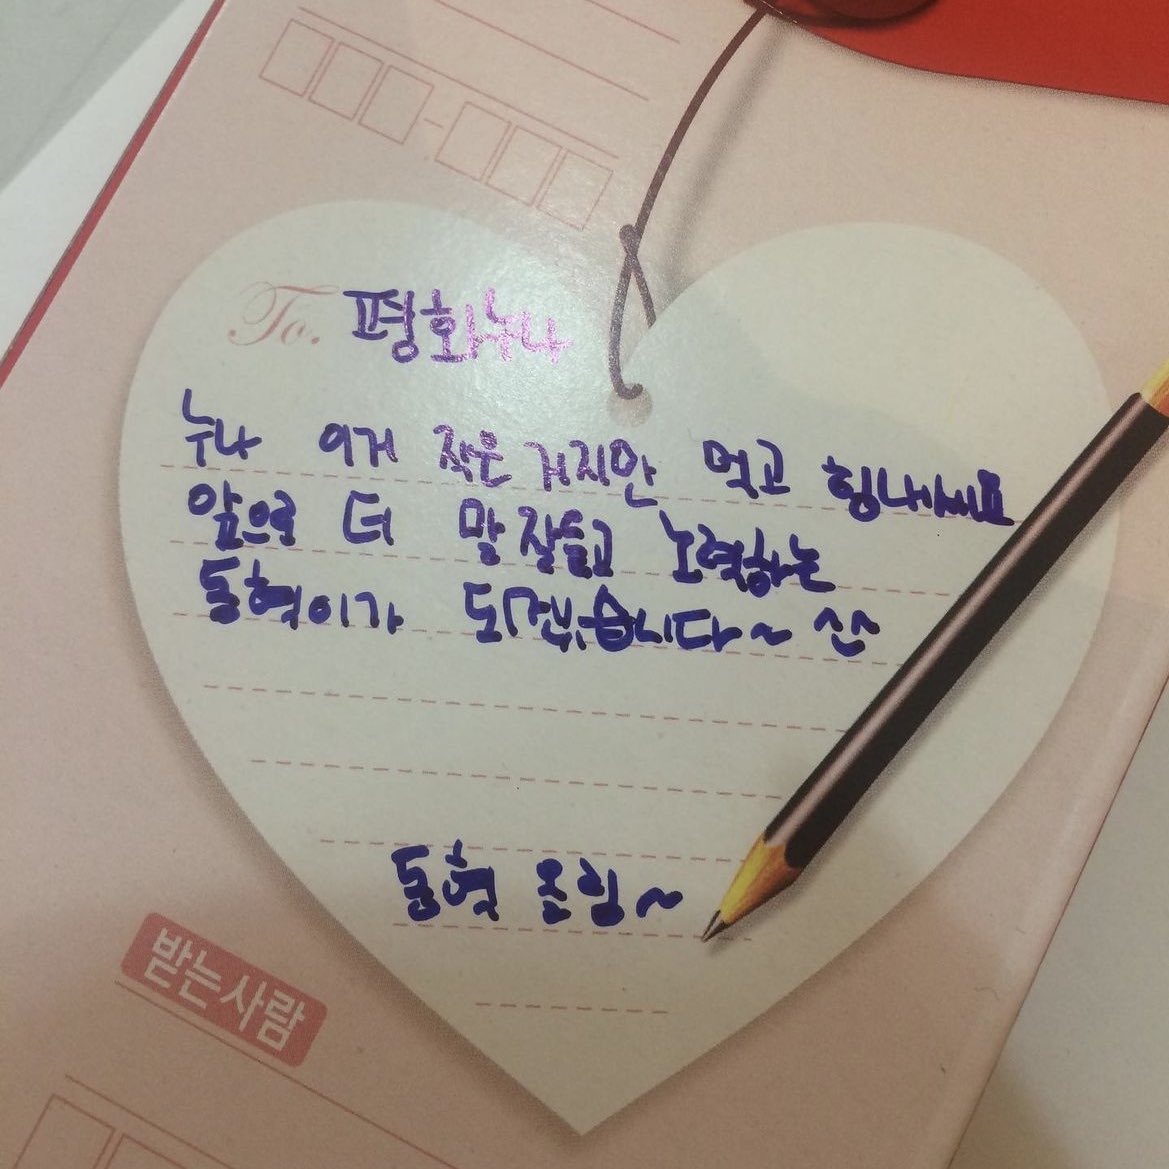 To. 평화누나
누나 이거 작은거지만 먹고 힘내세요
앞으로 더 말 잘듣고 노력하는
동혁이가 되겠습니다~ ^^
동혁 올림~
받는사람